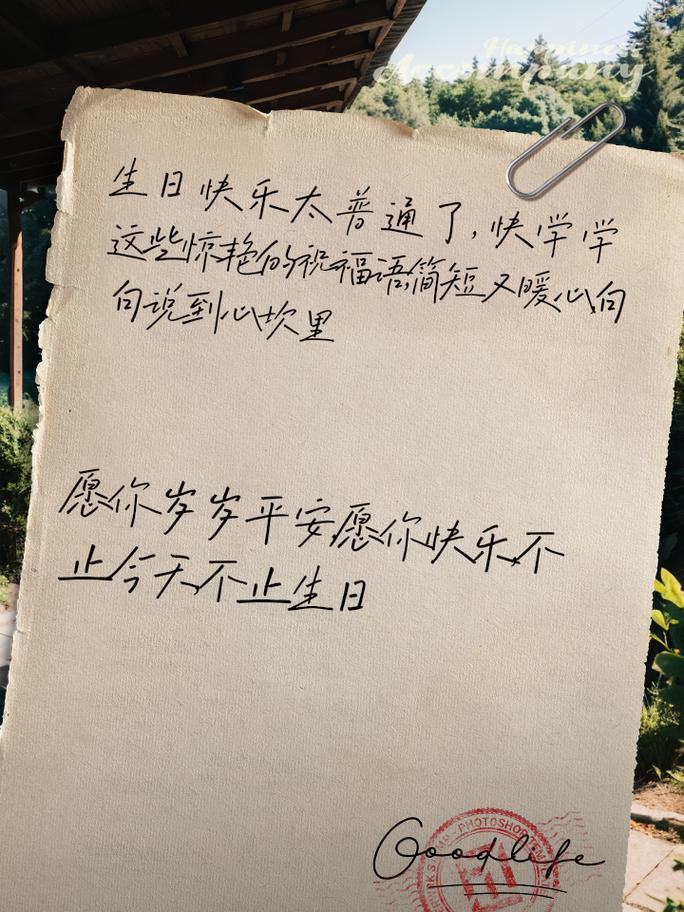 Happiness
Accompany
生日快乐太普通了,快学学
这些惊艳的祝福语,简短又暖心,句
句说到心坎里
愿你岁岁平安愿你快乐不
止今天不止生日
PHOTOSHOP
Goodlife